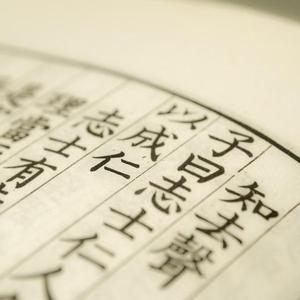 知去聲
子曰志士仁人
以成仁
志士有
理當